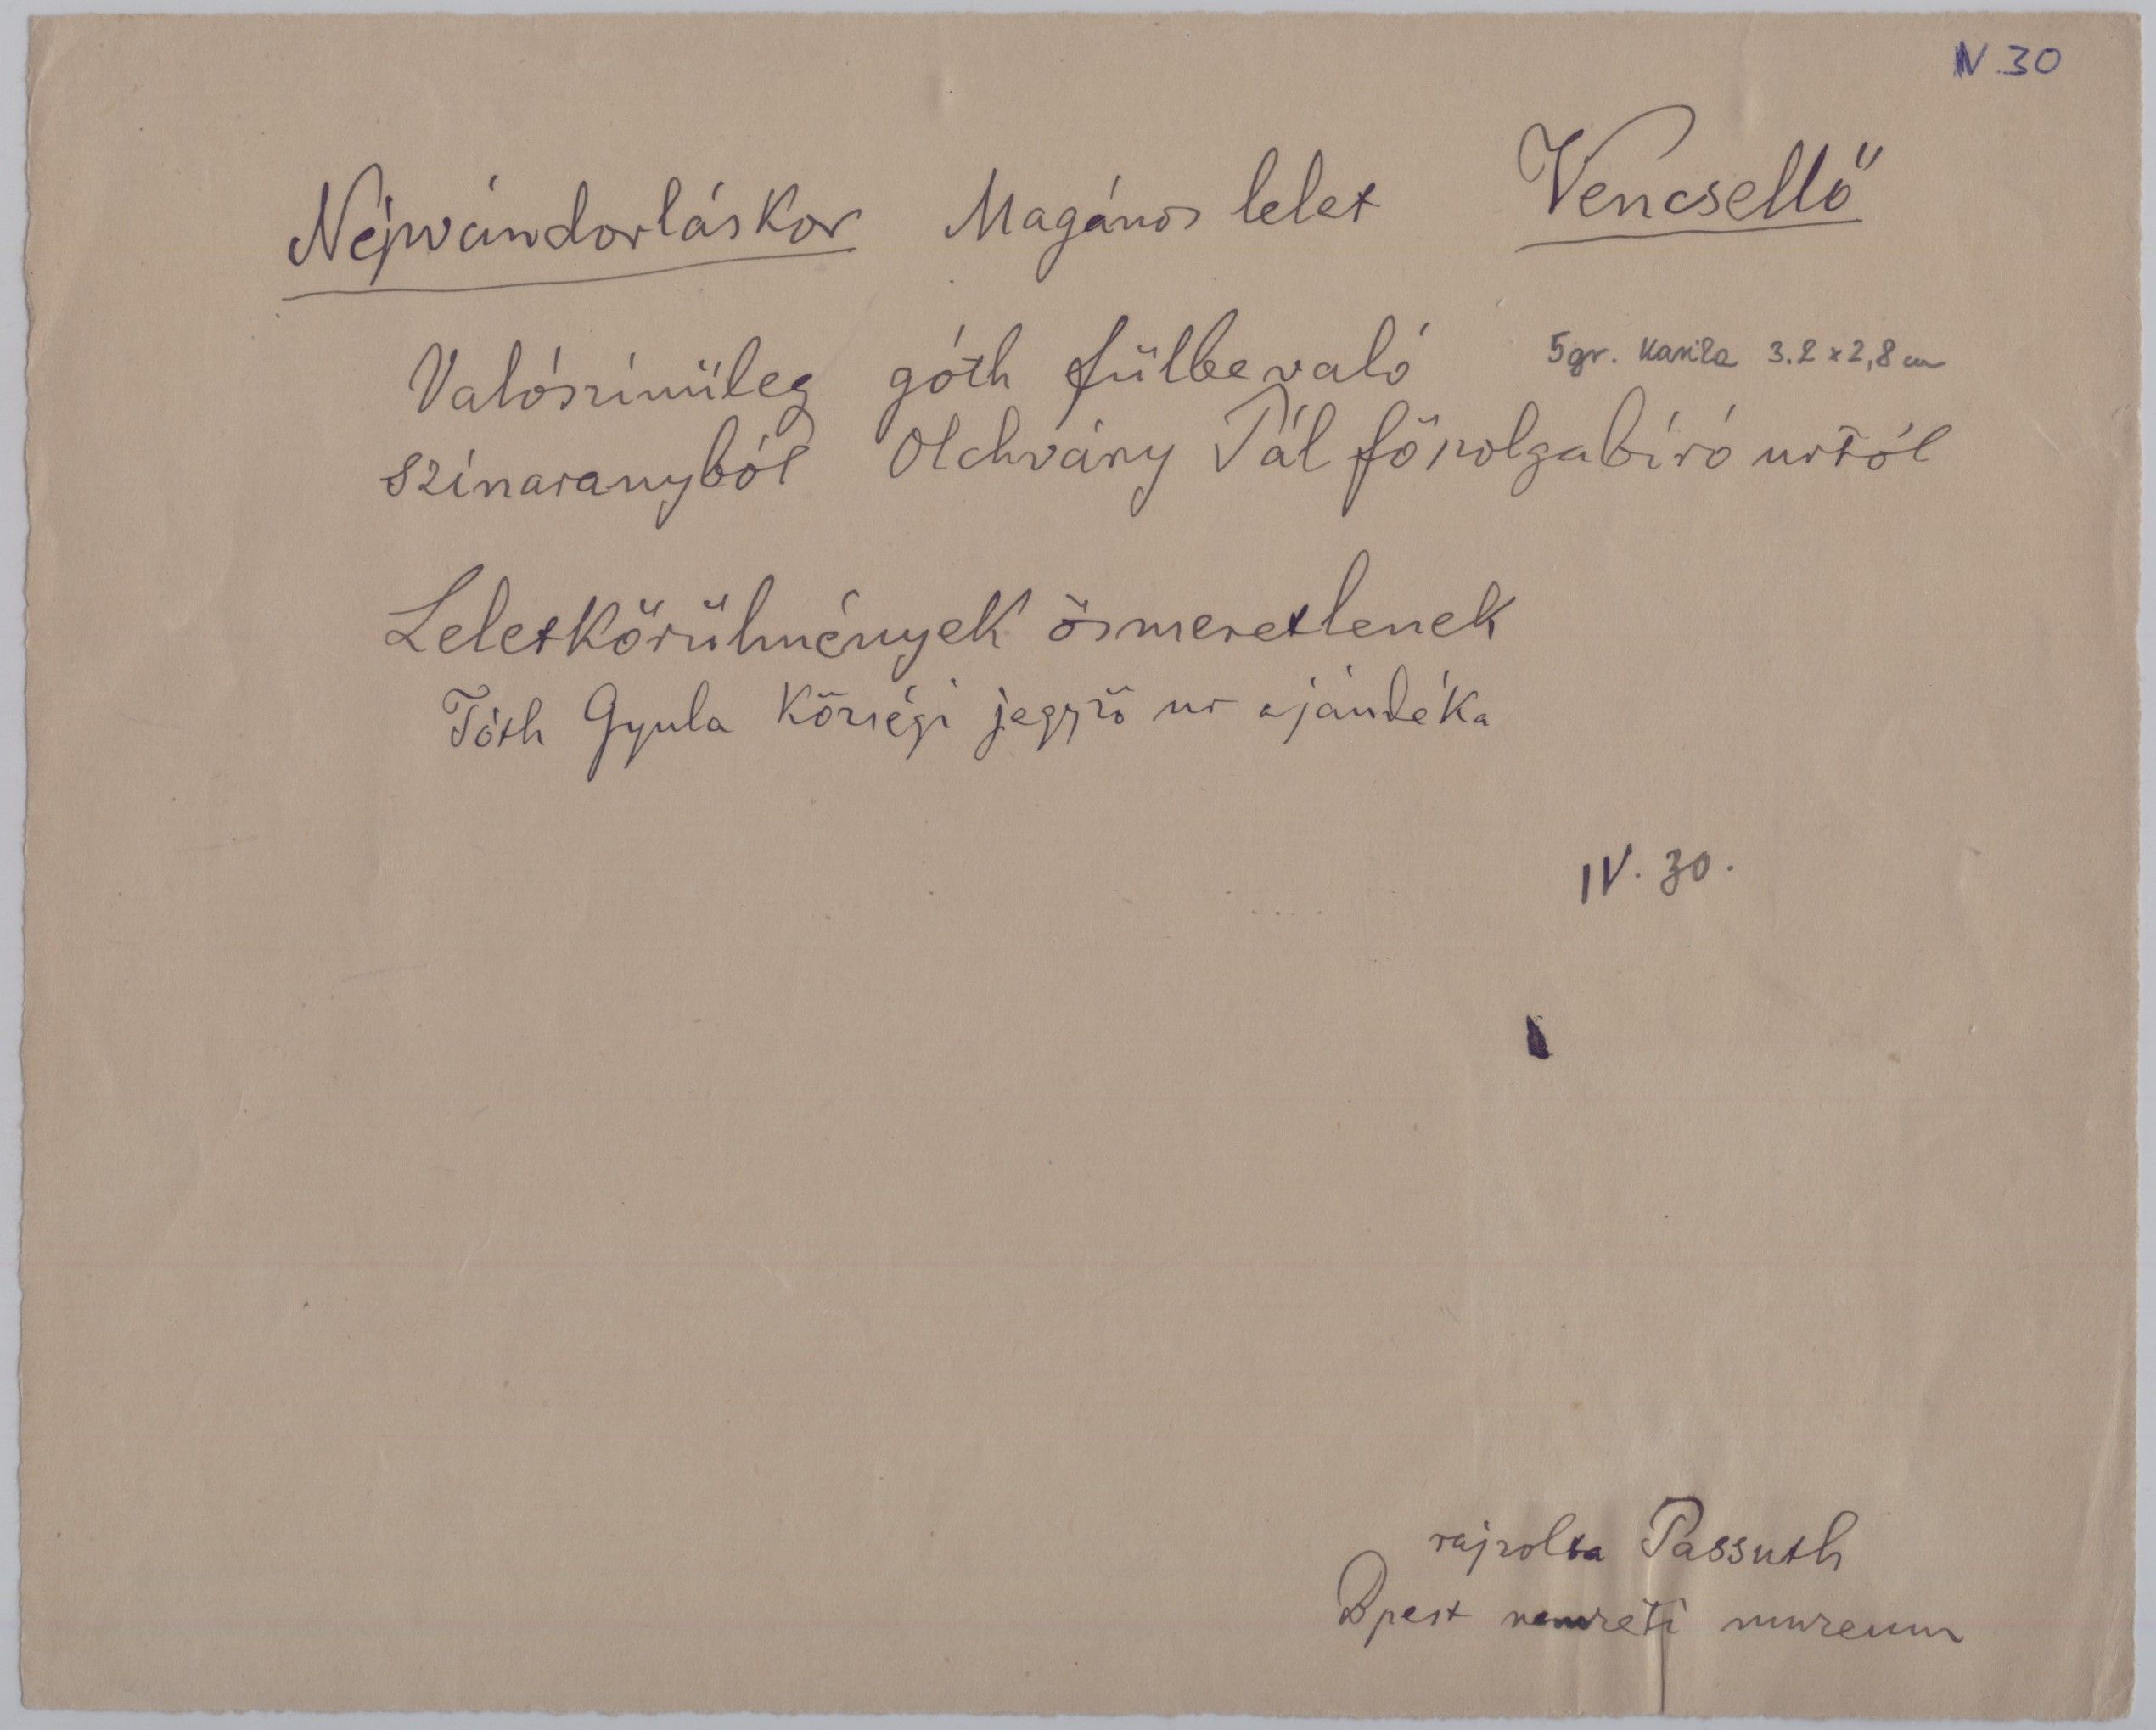 IV. 30
Népvándorláskor Magános lelet Vencsellő
Valószinüleg góth fülbevaló 5gr. karika 3.2 x 2,8 cm
színaranyból Olchváry Pál főszolgabíró urtól
Leletkörülmények ösmeretlenek
Tóth Gyula községi jegyző ur ajándéka
IV. 30.
rajzolta Passuth
Bpest nemzeti muzeum